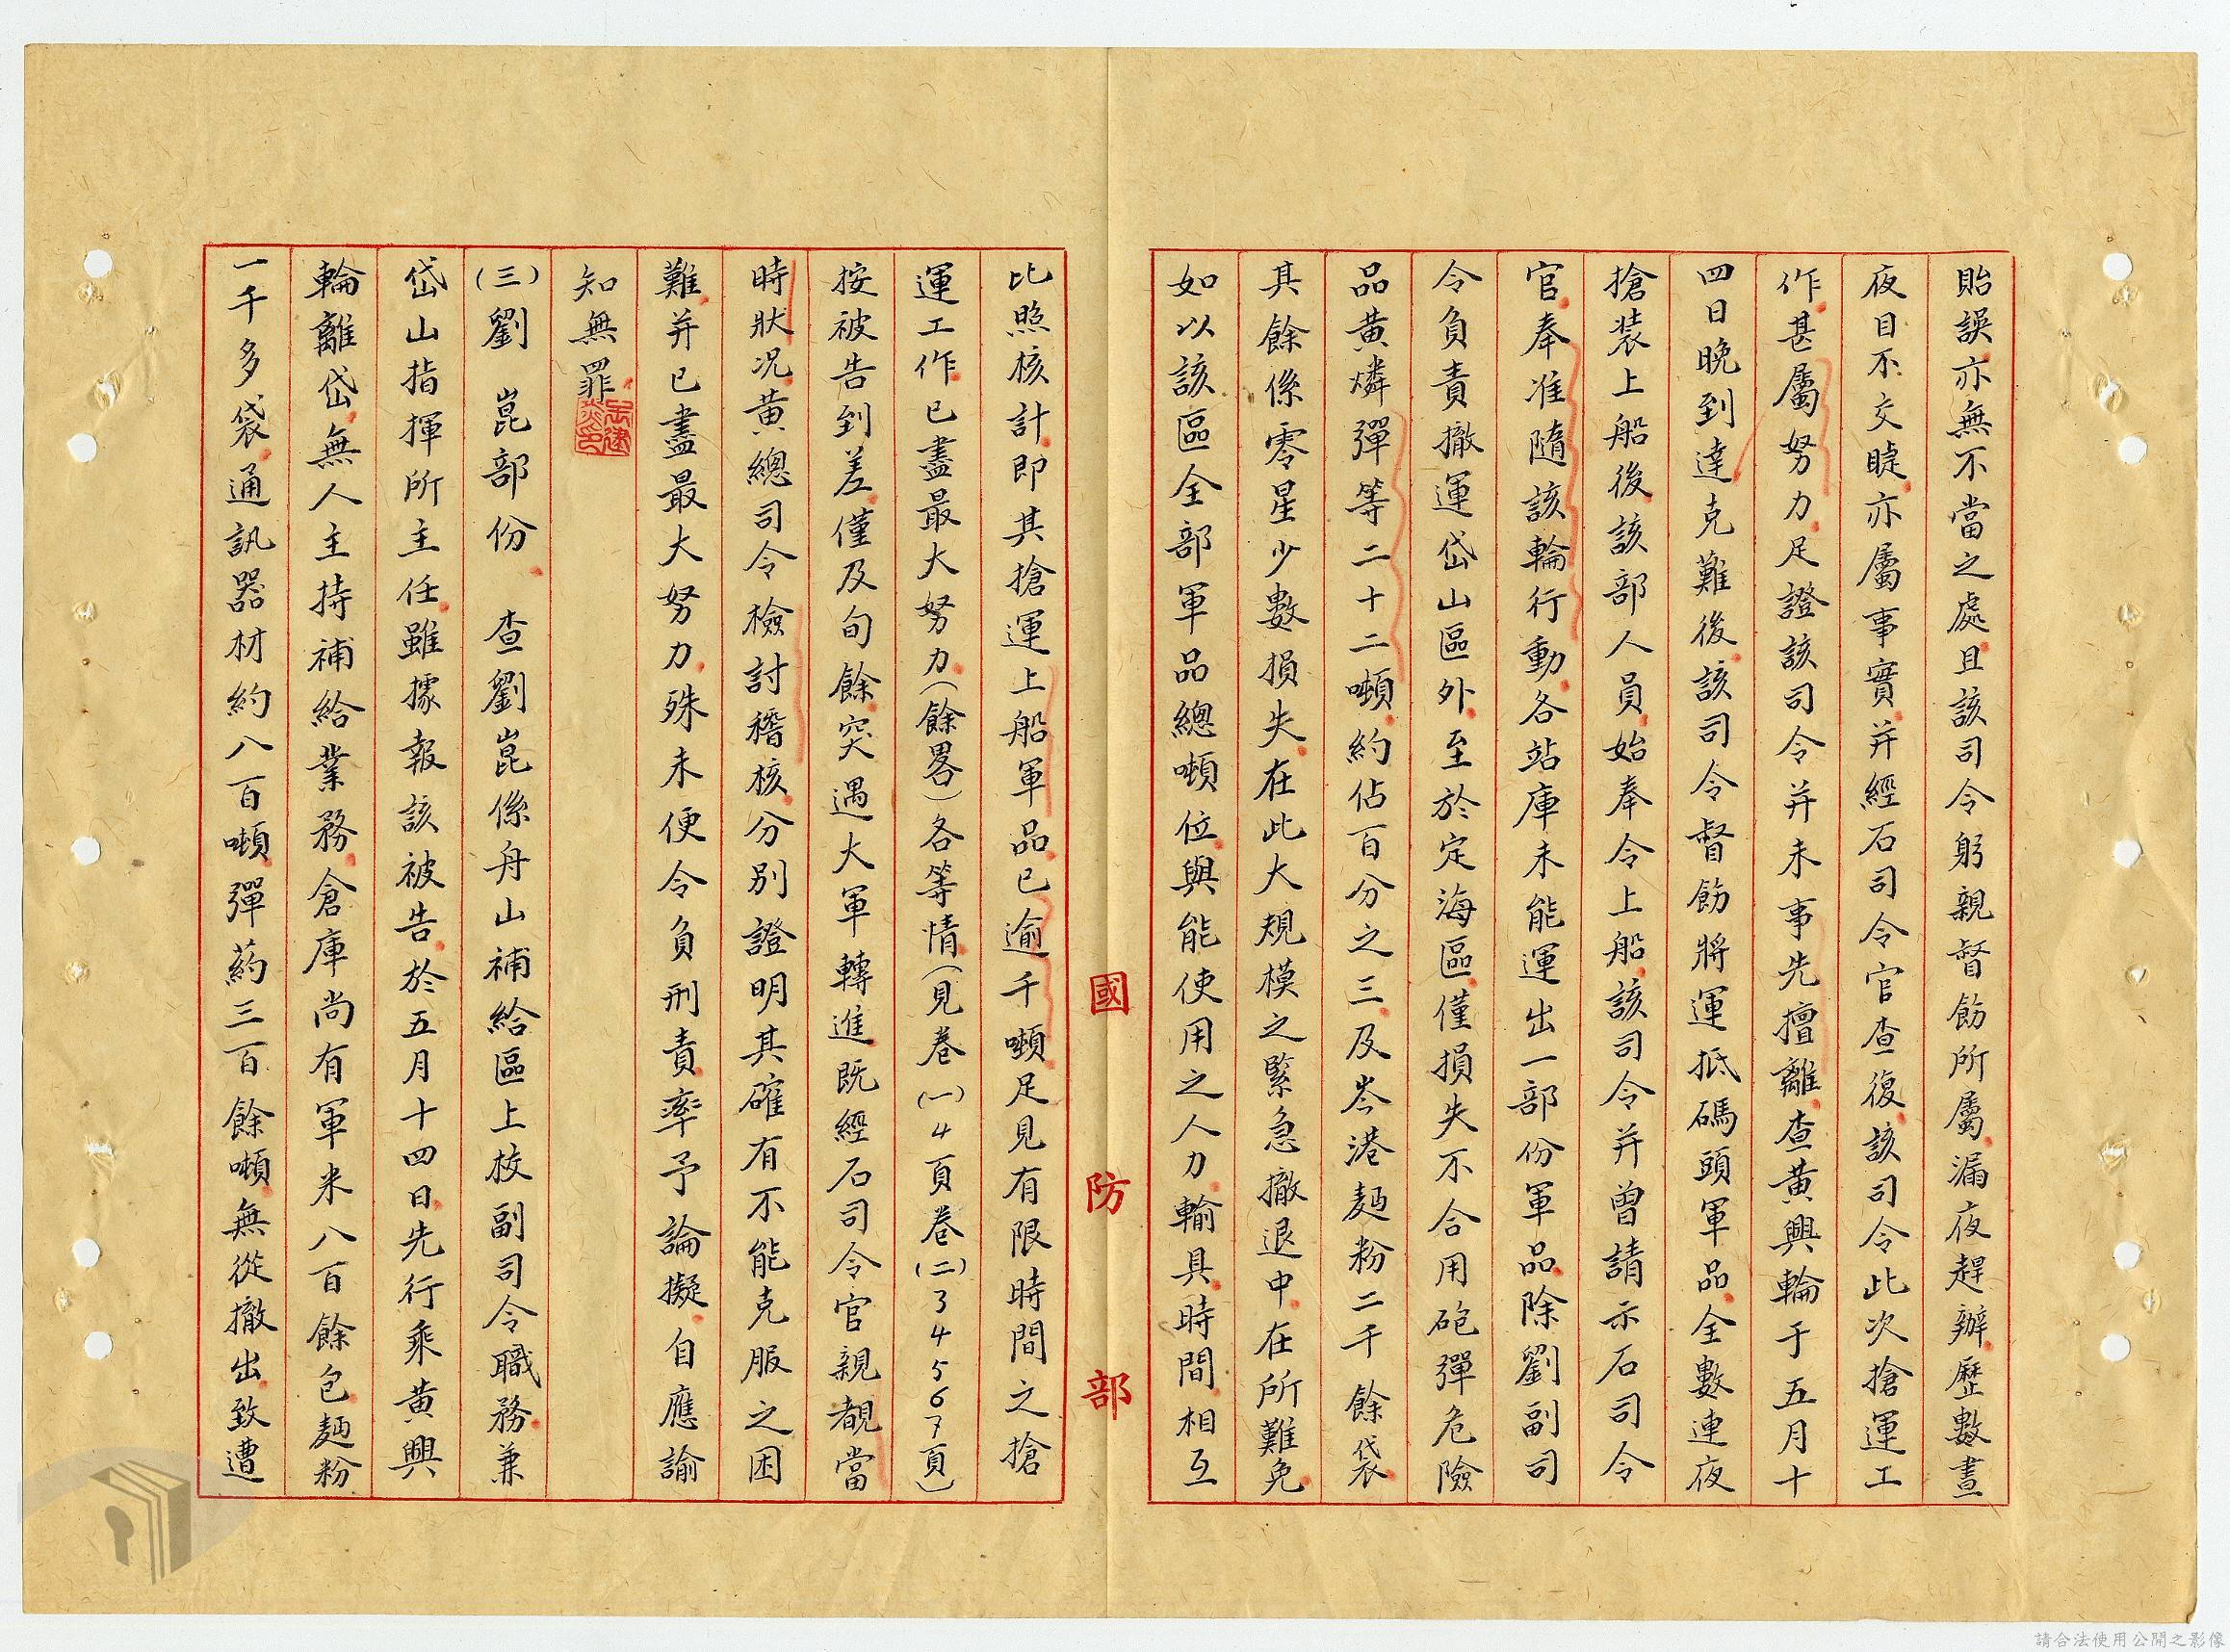 貽誤亦無不當之處且該司令躬親督飭所屬漏夜趕辦歷數晝
夜目不交睫亦屬事實并經石司令官查復該司令此次搶運工
作甚屬努力足證該司令并未事先擅離查黃興輪于五月十
四日晚到達克難後該司令督飭將運抵碼頭軍品全數連夜
搶裝上船後該部人員始奉令上船該司令并曾請示石司令
官奉准隨該輪行動各站庫未能運出一部份軍品除劉副司
令負責撤運岱山區外至於定海區僅損失不合用砲彈危險
品黃燐彈等二十二噸約佔百分之三及岑港麵粉二千餘袋
其餘係零星少數損失在此大規模之緊急撤退中在所難免
如以該區全部軍品總噸位與能使用之人力輸具時間相互
國防部
比照核計即其搶運上船軍品已逾千噸足見有限時間之搶
運工作已盡最大努力(餘畧)各等情(見卷(一)4頁卷(二)34567頁)
按被告到差僅及旬餘突遇大軍轉進既經石司令官親覩當
時狀况黃總司令檢討稽核分別證明其確有不能克服之困
難并已盡最大努力殊未便令負刑責率予論擬自應諭
知無罪
(三)劉 崑部份 查劉崑係舟山補給區上校副司令職務兼
岱山指揮所主任雖據報該被告於五月十四日先行乘黃興
輪離岱無人主持補給業務倉庫尚有軍米八百餘包麵粉
一千多袋通訊器材約八百噸彈葯三百餘噸無從撤出致遭
請合法使用公開之影像